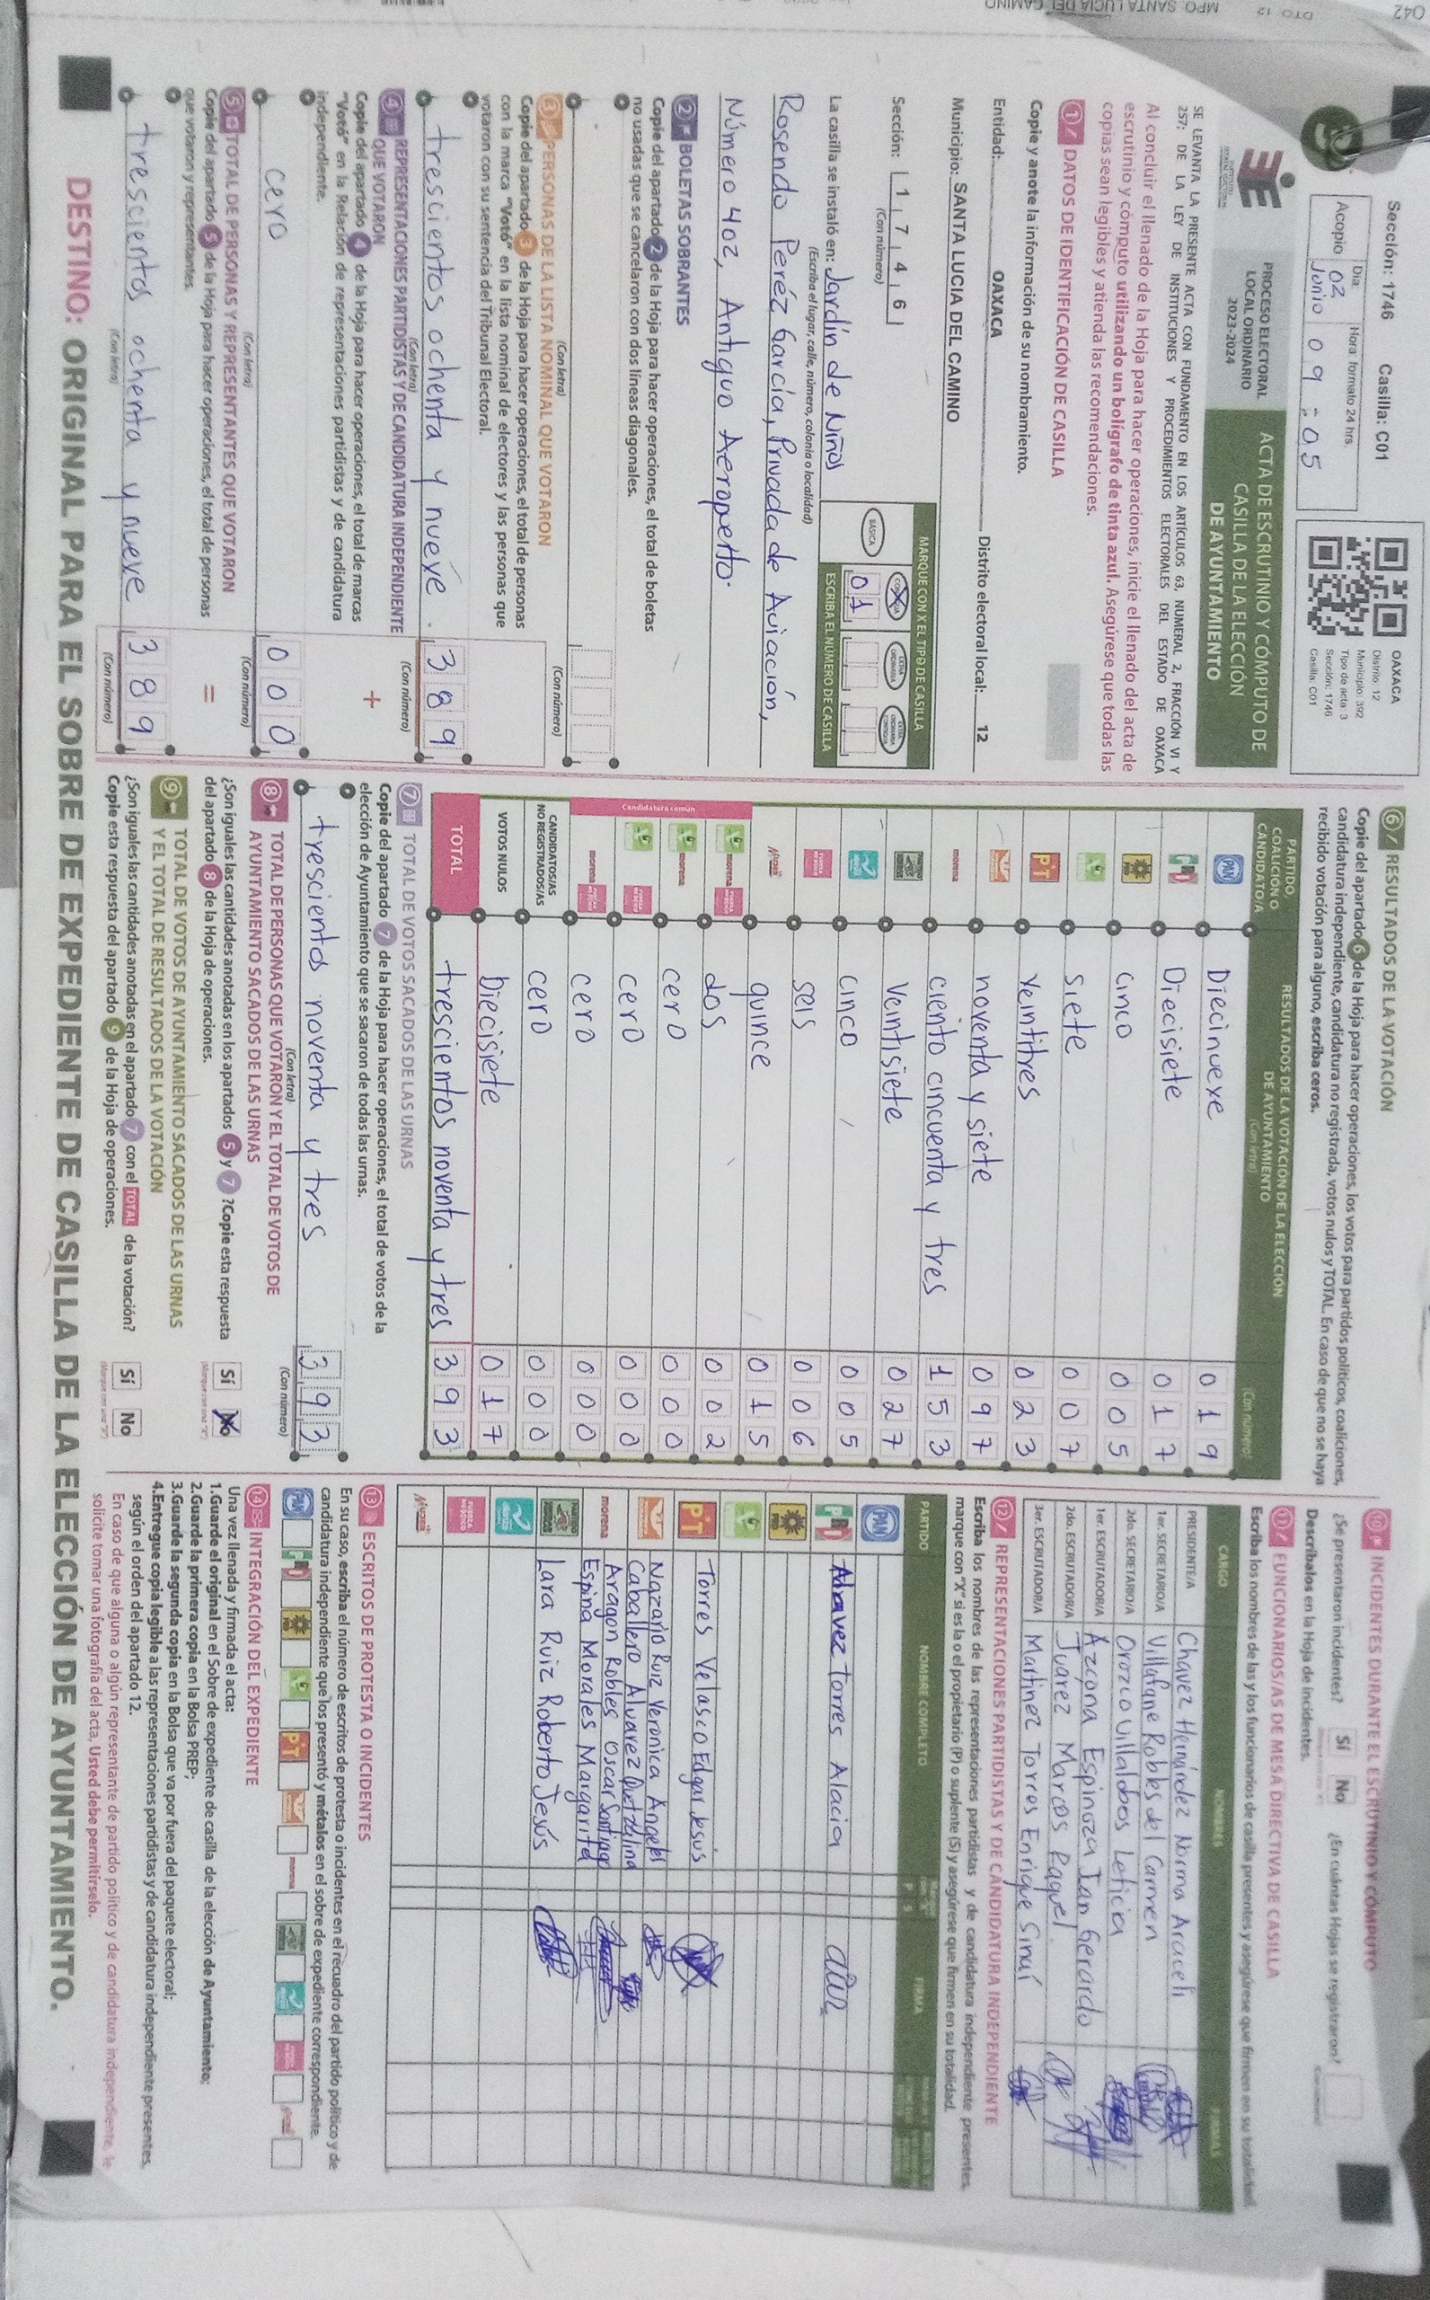 Sección: 1746 Casilla: C01
Acopio
Día:
02
Junio
Hora: formato 24 hrs.
09:05
OAXACA
Distrito: 12
Municipio: 392
Tipo de acta: 3
Sección: 1746
Casilla: C01
PROCESO ELECTORAL
LOCAL ORDINARIO
2023-2024
ACTA DE ESCRUTINIO Y CÓMPUTO DE
CASILLA DE LA ELECCIÓN
DE AYUNTAMIENTO
SE LEVANTA LA PRESENTE ACTA CON FUNDAMENTO EN LOS ARTÍCULOS 63, NUMERAL 2, FRACCIÓN VI Y
257; DE LA LEY DE INSTITUCIONES Y PROCEDIMIENTOS ELECTORALES DEL ESTADO DE OAXACA
Al concluir el llenado de la Hoja para hacer operaciones, inicie el llenado del acta de
escrutinio y cómputo utilizando un bolígrafo de tinta azul. Asegúrese que todas las
copias sean legibles y atienda las recomendaciones.
1 DATOS DE IDENTIFICACIÓN DE CASILLA
Copie y anote la información de su nombramiento.
Entidad: OAXACA Distrito electoral local: 12
Municipio: SANTA LUCIA DEL CAMINO
Sección: 1 7 4 6
(Con número)
MARQUE CON X EL TIPO DE CASILLA
BÁSICA
01
ESCRIBA EL NÚMERO DE CASILLA
La casilla se instaló en: Jardín de Niños
(Escriba el lugar, calle, número, colonia o localidad)
Rosendo Peréz García, Privada de Aviación,
Número 402, Antiguo Aeropuerto.
2 BOLETAS SOBRANTES
Copie del apartado 2 de la Hoja para hacer operaciones, el total de boletas
no usadas que se cancelaron con dos líneas diagonales.
(Con letra) (Con número)
3 PERSONAS DE LA LISTA NOMINAL QUE VOTARON
Copie del apartado 3 de la Hoja para hacer operaciones, el total de personas
con la marca "Votó" en la lista nominal de electores y las personas que
votaron con su sentencia del Tribunal Electoral.
trescientos ochenta y nueve. 389
(Con letra) (Con número)
4 REPRESENTACIONES PARTIDISTAS Y DE CANDIDATURA INDEPENDIENTE
QUE VOTARON
Copie del apartado 4 de la Hoja para hacer operaciones, el total de marcas
"Votó" en la Relación de representaciones partidistas y de candidatura
independiente.
+
cero 000
(Con letra) (Con número)
5 TOTAL DE PERSONAS Y REPRESENTANTES QUE VOTARON
Copie del apartado 5 de la Hoja para hacer operaciones, el total de personas
que votaron y representantes.
=
trescientos ochenta y nueve 389
(Con letra) (Con número)
6 RESULTADOS DE LA VOTACIÓN
Copie del apartado 6 de la Hoja para hacer operaciones, los votos para partidos políticos, coaliciones,
candidatura independiente, candidatura no registrada, votos nulos y TOTAL. En caso de que no se haya
recibido votación para alguno, escriba ceros.
PARTIDO,
COALICIÓN O
CANDIDATO/A
RESULTADOS DE LA VOTACIÓN DE LA ELECCIÓN
DE AYUNTAMIENTO
(Con letra) (Con número)
PAN Diecinueve 019
PRI Diecisiete 017
PRD cinco 005
siete 007
PT veintitres 023
noventa y siete 097
morena ciento cincuenta y tres 153
veintisiete 027
cinco 005
seis 006
quince 015
Candidatura común
morena dos 002
morena cero 000
cero 000
morena cero 000
CANDIDATOS/AS
NO REGISTRADOS/AS cero 000
VOTOS NULOS Diecisiete 017
TOTAL trescientos noventa y tres 393
7 TOTAL DE VOTOS SACADOS DE LAS URNAS
Copie del apartado 7 de la Hoja para hacer operaciones, el total de votos de la
elección de Ayuntamiento que se sacaron de todas las urnas.
trescientos noventa y tres 393
(Con letra) (Con número)
8 TOTAL DE PERSONAS QUE VOTARON Y EL TOTAL DE VOTOS DE
AYUNTAMIENTO SACADOS DE LAS URNAS
¿Son iguales las cantidades anotadas en los apartados 5 y 7 ?Copie esta respuesta
del apartado 8 de la Hoja de operaciones.
Sí No
9 TOTAL DE VOTOS DE AYUNTAMIENTO SACADOS DE LAS URNAS
Y EL TOTAL DE RESULTADOS DE LA VOTACIÓN
¿Son iguales las cantidades anotadas en el apartado 7 con el TOTAL de la votación?
Copie esta respuesta del apartado 9 de la Hoja de operaciones.
Sí No
10 INCIDENTES DURANTE EL ESCRUTINIO Y CÓMPUTO
¿Se presentaron incidentes? Sí No ¿En cuántas Hojas se registraron?
Descríbalos en la Hoja de incidentes.
11 FUNCIONARIOS/AS DE MESA DIRECTIVA DE CASILLA
Escriba los nombres de las y los funcionarios de casilla presentes y asegúrese que firmen en su totalidad.
CARGO NOMBRES FIRMAS
PRESIDENTE/A Chavez Hernández Norma Araceli
1er. SECRETARIO/A Villafañe Robles del Carmen
2do. SECRETARIO/A Orozco Villalobos Leticia
1er. ESCRUTADOR/A Azcona Espinoza Ian Gerardo
2do. ESCRUTADOR/A Juarez Marcos Raquel
3er. ESCRUTADOR/A Martinez Torres Enrique Sinaí
12 REPRESENTACIONES PARTIDISTAS Y DE CANDIDATURA INDEPENDIENTE
Escriba los nombres de las representaciones partidistas y de candidatura independiente presentes,
marque con "X" si es la o el propietario (P) o suplente (S) y asegúrese que firmen en su totalidad.
PARTIDO NOMBRE COMPLETO P S FIRMA
PAN
PRI Torres Alacia
PRD
PT Torres Velasco Edgar Jesús
Nazario Ruiz Veronica Angeles
Caballero Alvarez
morena Aragon Robles Oscar Santiago
Espina Morales Margarita
Lara Ruiz Roberto Jesús
13 ESCRITOS DE PROTESTA O INCIDENTES
En su caso, escriba el número de escritos de protesta o incidentes en el recuadro del partido político y de
candidatura independiente que los presentó y métalos en el sobre de expediente correspondiente.
PAN PRI PRD PT morena
14 INTEGRACIÓN DEL EXPEDIENTE
Una vez llenada y firmada el acta:
1.Guarde el original en el Sobre de expediente de casilla de la elección de Ayuntamiento;
2.Guarde la primera copia en la Bolsa PREP;
3.Guarde la segunda copia en la Bolsa que va por fuera del paquete electoral;
4.Entregue copia legible a las representaciones partidistas y de candidatura independiente presentes,
según el orden del apartado 12.
En caso de que alguna o algún representante de partido político y de candidatura independiente, le
solicite tomar una fotografía del acta, Usted debe permitírselo.
DESTINO: ORIGINAL PARA EL SOBRE DE EXPEDIENTE DE CASILLA DE LA ELECCIÓN DE AYUNTAMIENTO.